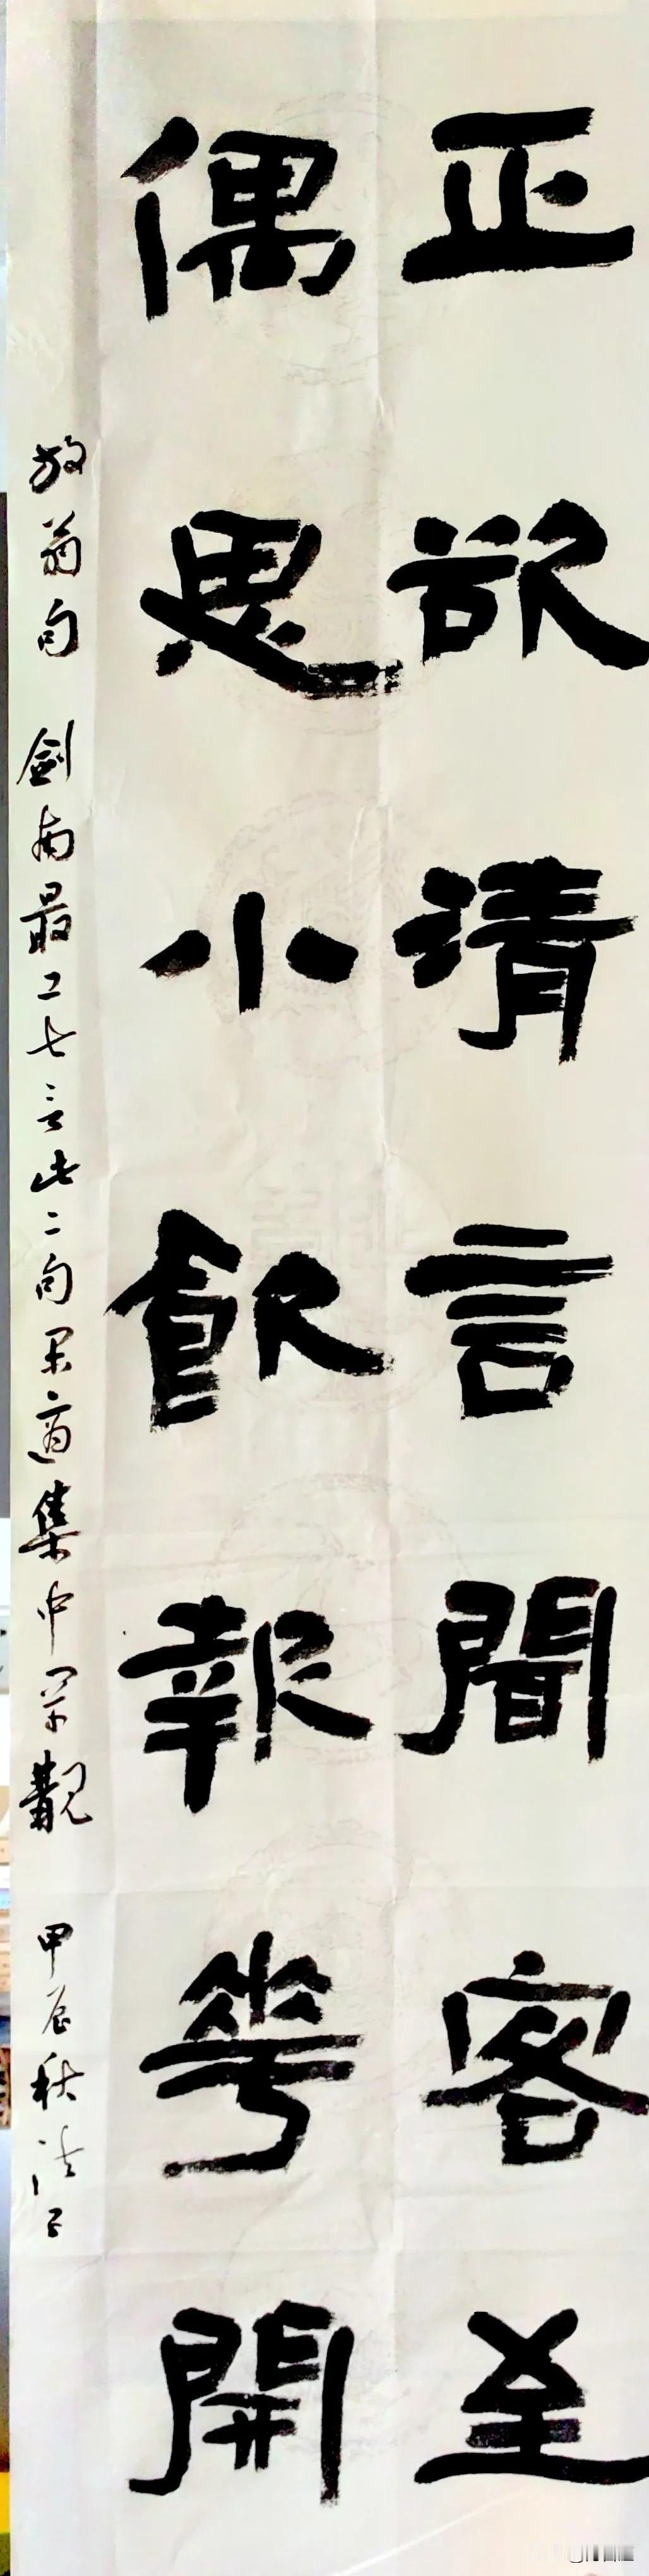 正欲清言聞客至
偶思小飲報花開
放翁句 劍南最工七言此二句閑適集中罕觀 甲辰秋